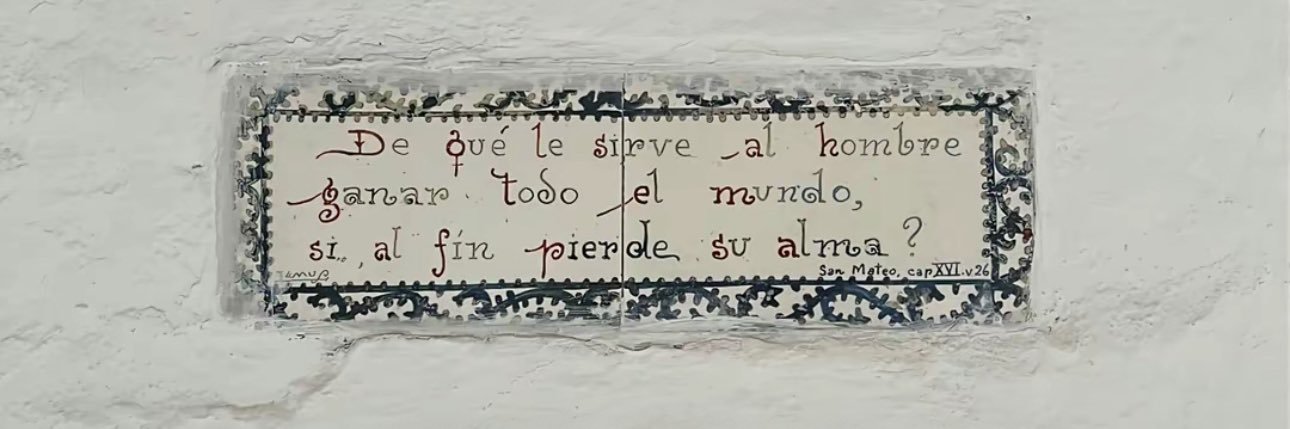 De qué le sirve al hombre
ganar todo el mundo,
si al fín pierde su alma?
San Mateo, cap XVI. v 26